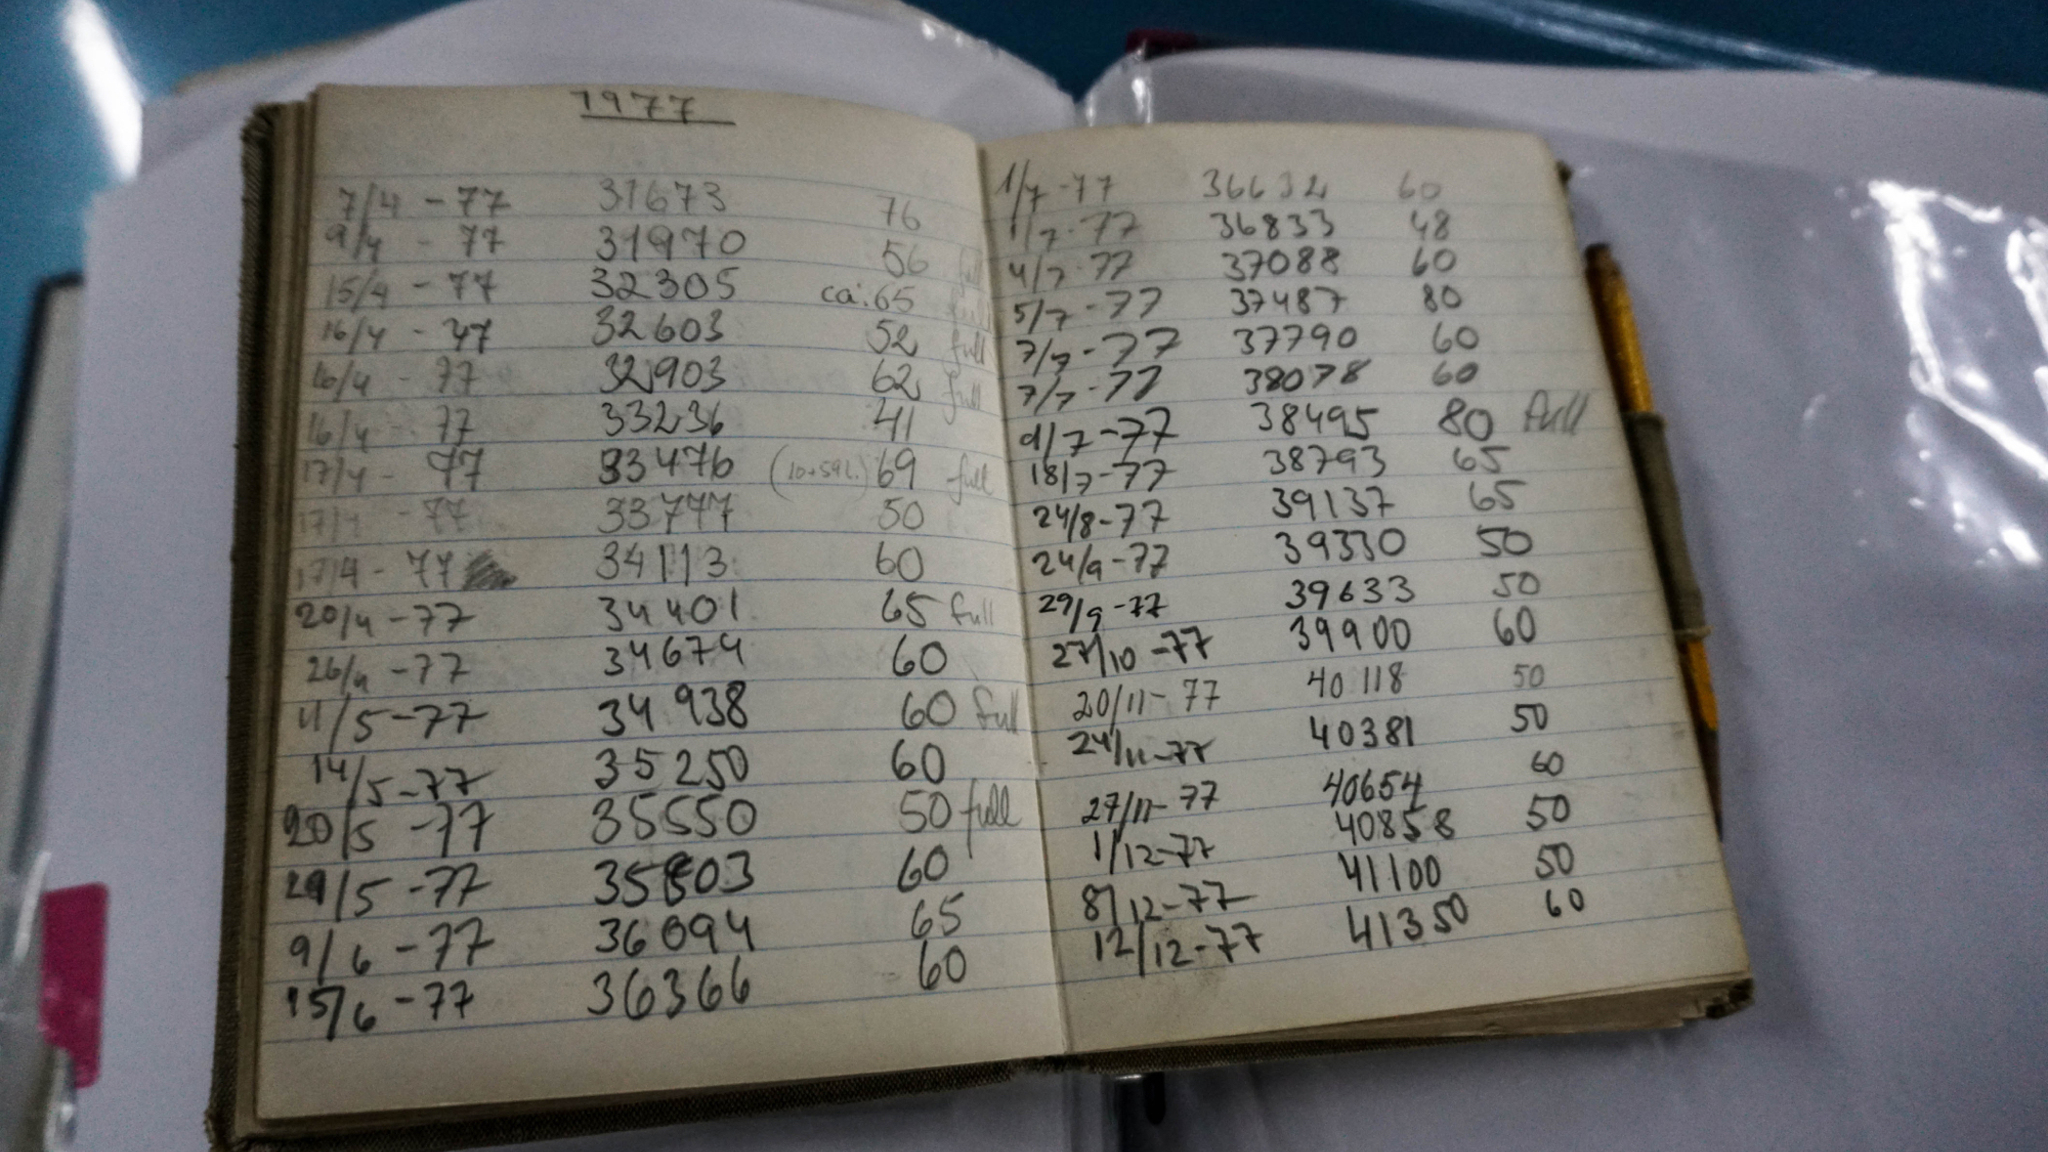 1977
7/4 - 77 31673 76
9/4 - 77 31970 56 full
15/4 - 77 32305 ca. 65 full
16/4 - 77 32603 52 full
16/4 - 77 32903 62 full
16/4 - 77 33236 41
17/4 - 77 33476 (10+59 l.) 69 full
17/4 - 77 33777 50
17/4 - 77 34113 60
20/4 - 77 34401 65 full
26/4 - 77 34674 60
11/5 - 77 34938 60 full
14/5 - 77 35250 60
20/5 - 77 35550 50 full
29/5 - 77 35803 60
9/6 - 77 36094 65
15/6 - 77 36366 60
1/7 - 77 36632 60
1/7 - 77 36833 48
4/7 - 77 37088 60
5/7 - 77 37487 80
7/7 - 77 37790 60
7/7 - 77 38078 60
9/7 - 77 38495 80 full
18/7 - 77 38793 65
24/8 - 77 39137 65
24/9 - 77 39330 50
29/9 - 77 39633 50
27/10 - 77 39900 60
20/11 - 77 40118 50
24/11 - 77 40381 50
27/11 - 77 40654 60
1/12 - 77 40858 50
8/12 - 77 41100 50
12/12 - 77 41350 60